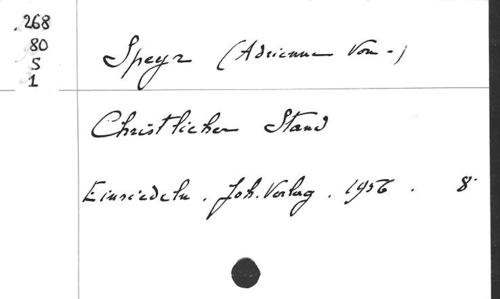 .268
80
S
1
Speyr (Adrienne von -)
Christlicher Stand
Einsiedeln . Joh. Verlag . 1956 . 8°